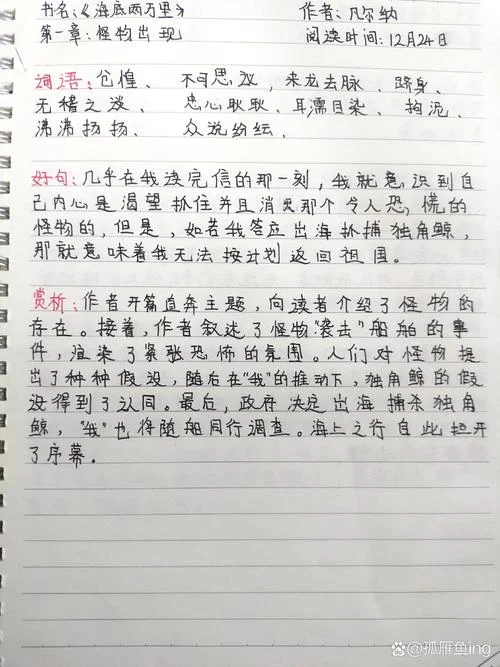 书名:《海底两万里》 作者:凡尔纳
第一章:怪物出现 阅读时间:12月24日
词语:仓惶、 不可思议,来龙去脉、跻身、
无稽之谈、 忠心耿耿、耳濡目染、拘泥、
沸沸扬扬、 众说纷纭、
好句:几乎在我读完信的那一刻,我就意识到自
己内心是渴望抓住并且消灭那个令人恐慌的
怪物的,但是,如若我答应出海抓捕独角鲸,
那就意味着我无法按计划返回祖国。
赏析:作者开篇直奔主题,向读者介绍了怪物的
存在。接着,作者叙述了怪物"袭击"船舶的事
件,渲染了紧张恐怖的氛围。人们对怪物提
出了种种假设,随后在"我"的推动下,独角鲸的假
设得到了认同。最后,政府决定出海捕杀独角
鲸,"我"也将随船同行调查。海上之行自此拉开
了序幕。
@孤雁鱼ing